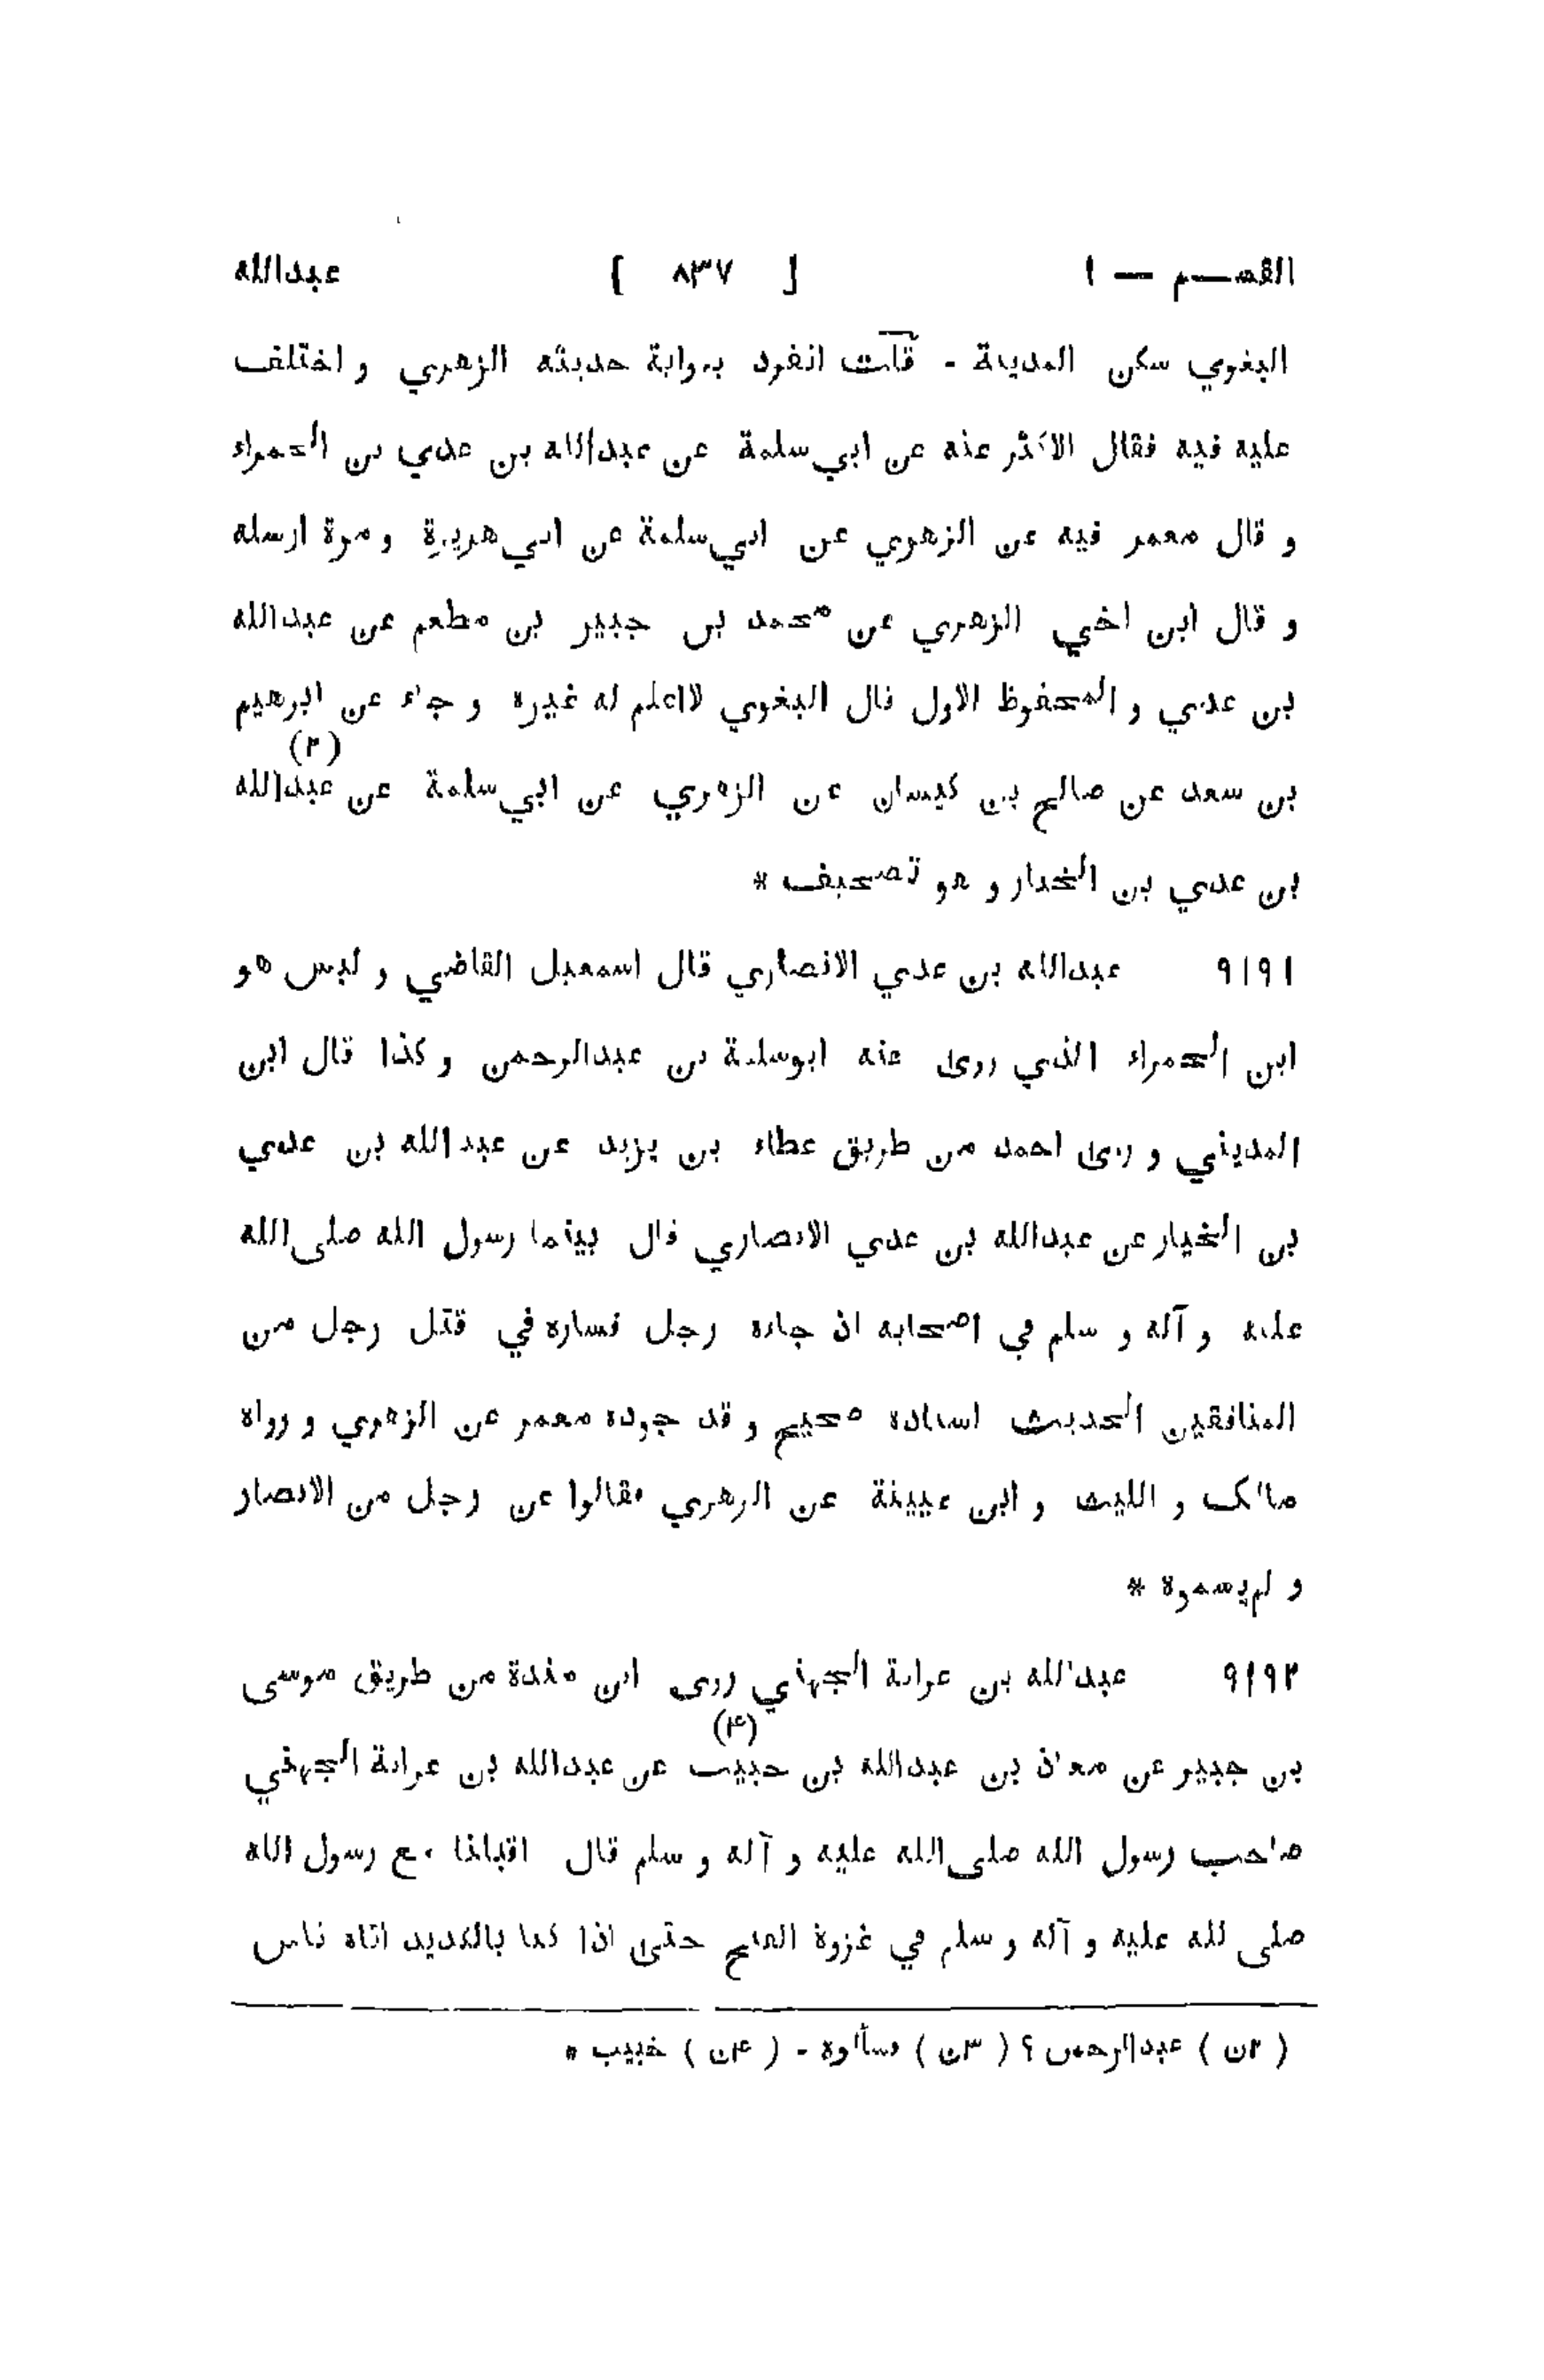 القسم — ١ [ ٨٣٧ ] عبدالله
البغوي سكن المدينة - قلت انفرد برواية حديثه الزهري و اختلف
عليه فيه فقال الاكثر عنه عن ابي سلمة عن عبدالله بن عدي بن الحمراء
و قال معمر فيه عن الزهري عن ابي سلمة عن ابي هريرة و مرة ارسله
و قال ابن اخي الزهري عن محمد بن جبير بن مطعم عن عبدالله
بن عدي و المحفوظ الاول قال البغوي لا اعلم له غيره و جاء عن ابرهيم
بن سعد عن صالح بن كيسان عن الزهري عن ابي سلمة عن عبدالله (٢)
بن عدي بن الخيار و هو تصحيف *
٩١٩١ عبدالله بن عدي الانصاري قال اسمعيل القاضي و ليس هو
ابن الحمراء الذي روى عنه ابوسلمة بن عبدالرحمن و كذا قال ابن
المديني و روى احمد من طريق عطاء بن يزيد عن عبدالله بن عدي
بن الخيار عن عبدالله بن عدي الانصاري قال بينما رسول الله صلى الله
عليه و آله و سلم في اصحابه اذ جاءه رجل فساره في قتل رجل من
المنافقين الحديث اسناده صحيح و قد جوده معمر عن الزهري و رواه
مالك و الليث و ابن عيينة عن الزهري فقالوا عن رجل من الانصار
و لم يسموه *
٩١٩٢ عبدالله بن عرابة الجهني روى ابن مندة من طريق موسى
بن جبير عن معاذ بن عبدالله بن حبيب (۴) عن عبدالله بن عرابة الجهني
صاحب رسول الله صلى الله عليه و آله و سلم قال اقبلنا مع رسول الله
صلى الله عليه و آله و سلم في غزوة الفتح حتى اذا كنا بالكديد اتاه ناس
( ٢ن ) عبدالرحمن ؟ ( ٣ن ) فسألوه - ( ۴ن ) خبيب *